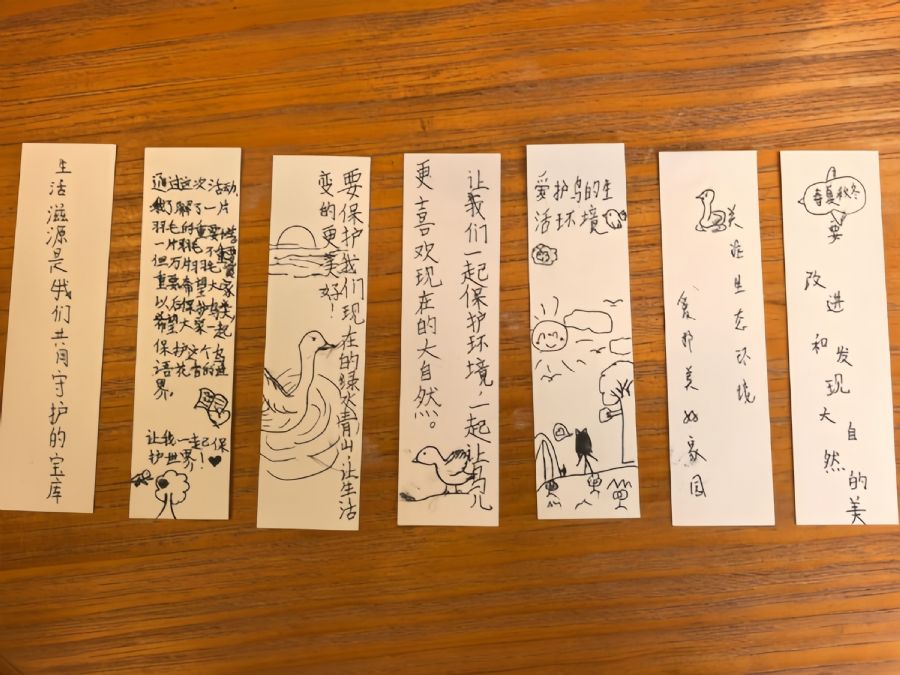 生活滋源是我们共同守护的宝库
通过这次活动,
我了解了一片
羽毛的重要
一片羽毛不重要
但万片羽毛
重要希望大家
以后保护鸟类
希望大家一起
保护这个鸟
语花香的世
界。
让我一起已保
护世界!
要保护我们现在的绿水青山让生活
变的更美好!
让我们一起保护环境,一起让鸟儿
更喜欢现在的大自然。
爱护鸟的生
活环境
关注生态环境
爱那美好家园
春夏秋冬
要
改进
和发现大自然的美